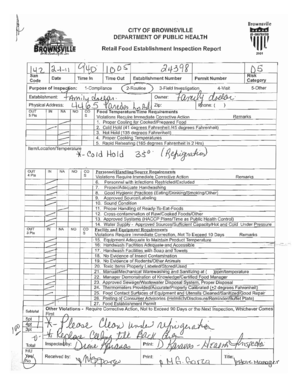 Brownsville
CITY OF BROWNSVILLE
DEPARTMENT OF PUBLIC HEALTH
BROWNSVILLE
Retail Food Establishment Inspection Report
142 2-4-11 940 1005 24398 05
San Code Date Time In Time Out Establishment Number Permit Number Risk Category
Purpose of Inspection: 1-Compliance 2-Routine 3-Field Investigation 4-Visit 5-Other
Establishment: Family dollar Owner: Family dollar
Physical Address: Zip: Phone: ( )
OUT IN NA NO COS Food Temperature/Time Requirements
5 Pts Violations Require Immediate Corrective Action Remarks
1. Proper Cooling for Cooked/Prepared Food
2. Cold Hold (41 degrees Fahrenheit/45 degrees Fahrenheit)
3. Hot Hold (135 degrees Fahrenheit)
4. Proper Cooking Temperatures
5. Rapid Reheating (165 degrees Fahrenheit in 2 Hrs)
Item/Location/Temperature
*- Cold Hold 33° (Refrigerator)
OUT IN NA NO COS Personnel/Handling/Source Requirements
4 Pts Violations Require Immediate Corrective Action Remarks
6. Personnel with Infections Restricted/Excluded
7. Proper/Adequate Handwashing
8. Good Hygienic Practices (Eating/Drinking/Smoking/Other)
9. Approved Source/Labeling
10. Sound Condition
11. Proper Handling of Ready-To-Eat Foods
12. Cross-contamination of Raw/Cooked Foods/Other
13. Approved Systems (HACCP Plans/Time as Public Health Control)
14. Water Supply - Approved Sources/Sufficient Capacity/Hot and Cold Under Pressure
OUT IN NA NO COS Facility and Equipment Requirements
3 Pts Violations Require Immediate Correction, Not To Exceed 10 Days Remarks
15. Equipment Adequate to Maintain Product Temperature
16. Handwash Facilities Adequate and Accessible
17. Handwash Facilities with Soap and Towels
18. No Evidence of Insect Contamination
19. No Evidence of Rodents/Other Animals
20. Toxic Items Properly Labeled/Stored/Used
21. Manual/Mechanical Warewashing and Sanitizing at ( ) ppm/temperature
22. Manager Demonstration of Knowledge/Certified Food Manager
23. Approved Sewage/Wastewater Disposal System, Proper Disposal
24. Thermometers Provided/Accurate/Properly Calibrated (±2 degrees Fahrenheit)
25. Food Contact Surfaces of Equipment and Utensils Cleaned/Sanitized/Good Repair
26. Posting of Consumer Advisories
27. Food Establishment Permit
Other Violations - Require Corrective Action, Not to Exceed 90 Days or the Next Inspection, Whichever Comes First
*- Please Clean under refrigeration
Inspected by: Print:
Received by: Print: M.G. Garza Title: Store Manager